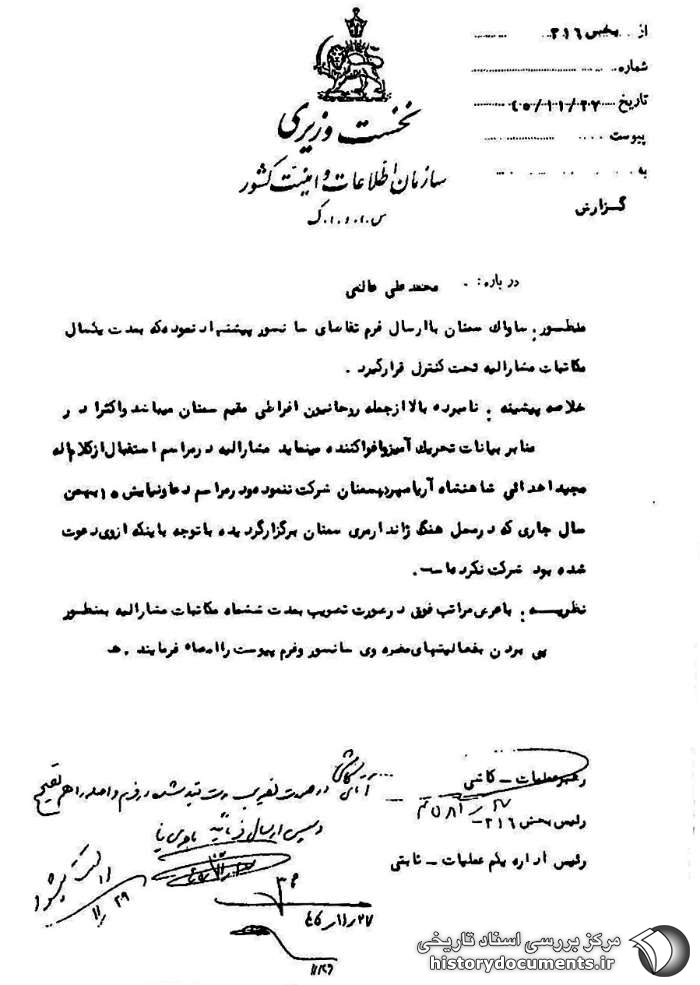 از بخش ۳۱۶
شماره
تاریخ ۴۵/۱۱/۲۷
پیوست
به
گزارش
نخست وزیری
سازمان اطلاعات و امنیت کشور
س.ا.و.ا.ک
درباره: محمد علی عالمی
منظور: ساواک سمنان با ارسال فرم تقاضای سانسور پیشنهاد نموده که بمدت یکسال
مکاتبات مشارالیه تحت کنترل قرارگیرد.
خلاصه پیشینه: نامبرده بالا ازجمله روحانیون افراطی مقیم سمنان میباشد واکثرا در
منابر بیانات تحریک آمیزواغواکننده مینماید مشارالیه درمراسم استقبال از کلام اله
مجید اهدائی شاهنشاه آریامهر به سمنان شرکت ننموده ودرمراسم دعا ونیایش ۱۵ بهمن
سال جاری که درمحل هنگ ژاندارمری سمنان برگزارگردیده باتوجه باینکه ازوی دعوت
شده بود شرکت نکرده است.
نظریه: باعرض مراتب فوق درصورت تصویب بمدت ششماه مکاتبات مشارالیه بمنظور
پی بردن بفعالیتهای مضره وی سانسور وفرم پیوست را امضاء فرمایند. ه
رهبر عملیات - کاشی
رئیس بخش ۳۱۶-
رئیس اداره یکم عملیات - ثابتی
آقای کاشی
۴۵/۱۱/۲۷
مرکز بررسی اسناد تاریخی
historydocuments.ir